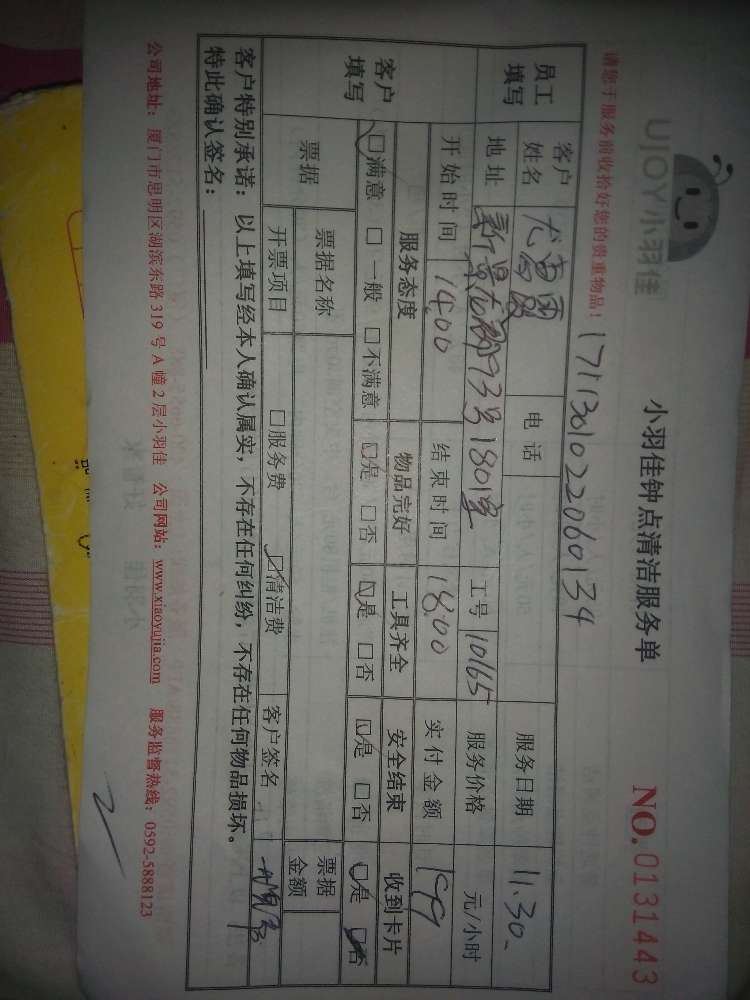 UJOY小羽佳
小羽佳钟点清洁服务单
NO.0131443
请您于服务前收拾好您的贵重物品!
171130102206 0134
员工填写
客户姓名 电话 服务日期 11.30.
地址 新景龙郡93号1801室 工号 10165 服务价格 元/小时
开始时间 14.00 结束时间 18.00 实付金额 199
客户填写
服务态度 物品完好 工具齐全 安全结束 收到卡片
☑满意 □一般 □不满意 ☑是 □否 ☑是 □否 ☑是 □否 □是 ☑否
票据 票据名称 票据金额
开票项目 □服务费 ☑清洁费 客户签名
客户特别承诺:以上填写经本人确认属实,不存在任何纠纷,不存在任何物品损坏。
特此确认签名:
公司地址:厦门市思明区湖滨东路319号A幢2层小羽佳 公司网站:www.xiaoyujia.com 服务监督热线:0592-5888123